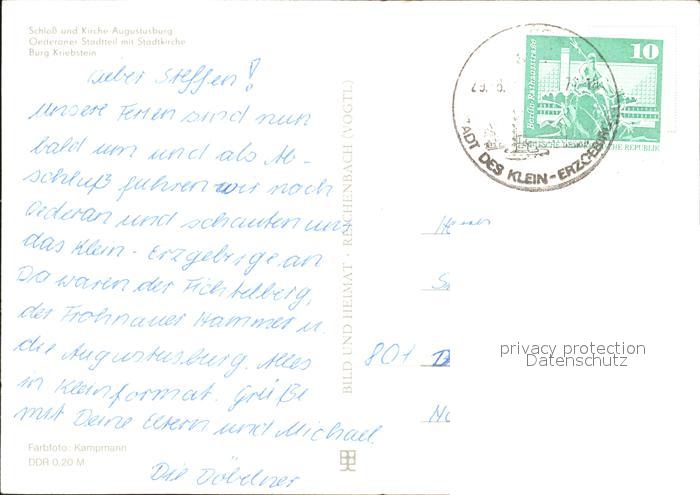 Schloß und Kirche Augustusburg
Oederaner Stadtteil mit Stadtkirche
Burg Kriebstein
Lieber Steffen!
Unsere Ferien sind nun
bald um und als Ab-
schluß fuhren wir nach
Oederan und schauten uns
das Klein-Erzgebirge an
Da waren der Fichtelberg,
der Frohnauer Hammer u.
die Augustusburg. Alles
in Kleinformat. Grüße
mit Deine Eltern und Michael.
Die Döbelner
Farbfoto: Kampmann
DDR 0,20 M
BILD UND HEIMAT · REICHENBACH (VOGTL)
10
Berlin, Rathausstraße
DIE REPUBLIK
TADT DES KLEIN-ERZGEBIRG
801
privacy protection
Datenschutz